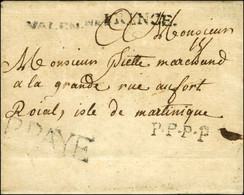 VALENCE
FRANCE.
A Monsieur
Monsieur Piette marchand
a la grande rue au fort
Roial, isle de martinique
P.PAYE
P.P.P.P